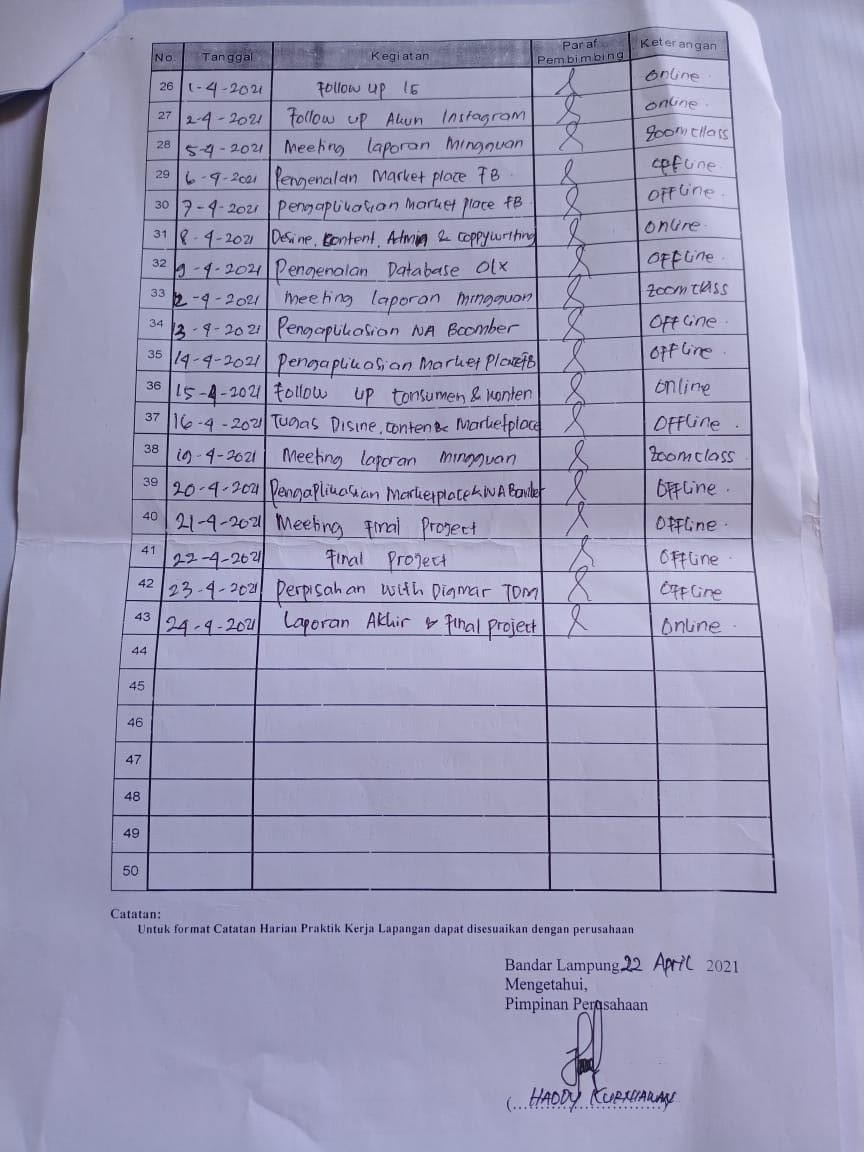 No. Tanggal Kegiatan Paraf Pembimbing Keterangan
26 1-4-2021 Follow up IG Online.
27 2-4-2021 Follow up Akun Instagram online.
28 5-4-2021 Meeting laporan Mingguan Zoom class
29 6-4-2021 Pengenalan Market place FB. offline.
30 7-4-2021 Pengaplikasian Market place FB. Offline.
31 8-4-2021 Desine, Content, Admin & Coppywriting online.
32 9-4-2021 Pengenalan Database Olx Offline.
33 12-4-2021 Meeting laporan mingguan Zoom class
34 13-4-2021 Pengaplikasian WA Boomber Offline.
35 14-4-2021 Pengaplikasian Market Place FB Offline.
36 15-4-2021 Follow up Consumen & Konten Online
37 16-4-2021 Tugas Disine, content & Marketplace Offline.
38 19-4-2021 Meeting laporan mingguan Zoom class
39 20-4-2021 Pengaplikasian Marketplace & WA Bomber Offline.
40 21-4-2021 Meeting Final Project Offline.
41 22-4-2021 Final Project Offline.
42 23-4-2021 Perpisahan with Digmar TDM Offline
43 24-4-2021 Laporan Akhir & Final project Online.
44
45
46
47
48
49
50
Catatan:
Untuk format Catatan Harian Praktik Kerja Lapangan dapat disesuaikan dengan perusahaan
Bandar Lampung 22 April 2021
Mengetahui,
Pimpinan Perusahaan
(...HADDY KURNIAWAN